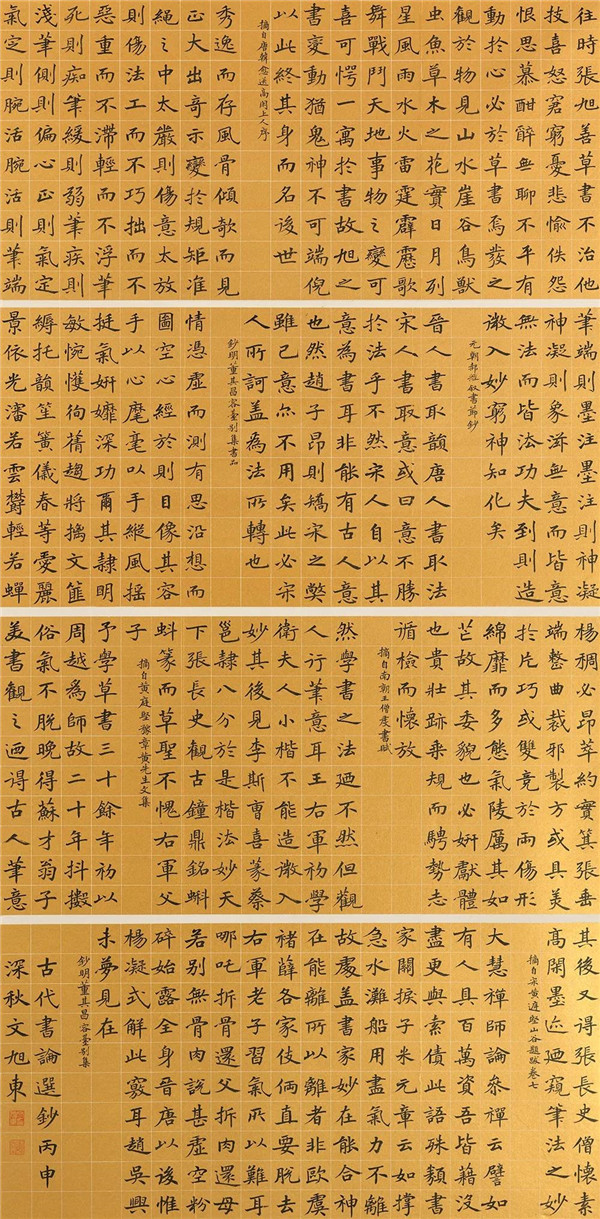 往時張旭善草書不治他
技喜怒窘窮憂悲愉佚怨
恨思慕酣醉無聊不平有
動於心必於草書焉發之
觀於物見山水崖谷鳥獸
虫魚草木之花實日月列
星風雨水火雷霆霹靂歌
舞戰鬥天地事物之變可
喜可愕一寓於書故旭之
書變動猶鬼神不可端倪
以此終其身而名後世
摘自唐韓愈送高閑上人序
秀逸而存風骨傾欹而見
正大出奇示變於規矩准
繩之中太嚴則傷意太放
則傷法工而不巧拙而不
惡重而不滯輕而不浮筆
死則痴筆緩則弱筆疾則
淺筆側則偏心正則氣定
氣定則腕活腕活則筆端
筆端則墨注墨注則神凝
神凝則象滋無意而皆意
無法而皆法功夫到則造
微入妙窮神知化矣
元朝郝經敘書節鈔
晉人書取韻唐人書取法
宋人書取意或曰意不勝
於法乎不然宋人自以其
意為書耳非能有古人意
也然趙子昂則矯宋之獘
雖己意尔不用矣此必宋
人所訶盖為法所轉也
鈔明董其昌容臺別集書品
情憑虛而測有思沿想而
圖空心經於則目像其容
手以心麾毫以手縱風搖
挺氣妍孊深功爾其隸明
敏惋㦎徇蒨趨將摛文篚
縟托韻笙簧儀春等愛麗
景依光瀋若雲鬱輕若蟬
楊稠必昂萃約實箕張垂
端整曲裁邪製方或具美
於片巧或雙竞於兩傷形
綿靡而多態氣陵厲其如
芒故其委貌也必妍獻體
也貴壯跡乘規而騁勢志
循檢而懷放
摘自南朝王僧虔書賦
然學書之法廼不然但觀
人行筆意耳王右軍初學
衛夫人小楷不能造微入
妙其後見李斯曹喜篆蔡
邕隸八分於是楷法妙天
下張長史觀古鐘鼎銘蝌
蚪篆而草聖不愧右軍父
子
摘自黃庭堅豫章黃先生文集
予學草書三十餘年初以
周越為師故二十年抖擻
俗氣不脫晚得蘇才翁子
美書觀之廼得古人筆意
其後又得張長史僧懷素
高閑墨迹廼窺筆法之妙
摘自宋黃庭堅山谷題跋卷七
大慧禪師論參禪云譬如
有人具百萬資吾皆藉沒
盡更與索債此語殊類書
家關捩子米元章云如撐
急水灘船用盡氣力不離
故處盖書家妙在能合神
在能離所以離者非歐虞
褚薛各家伎倆直要脫去
右軍老子習氣所以難耳
哪吒拆骨還父拆肉還母
若別無骨肉說甚虛空粉
碎始露全身晉唐以後惟
楊凝式解此竅耳趙吳興
未夢見在
鈔明董其昌容臺別集
古代書論選鈔丙申
深秋文旭東